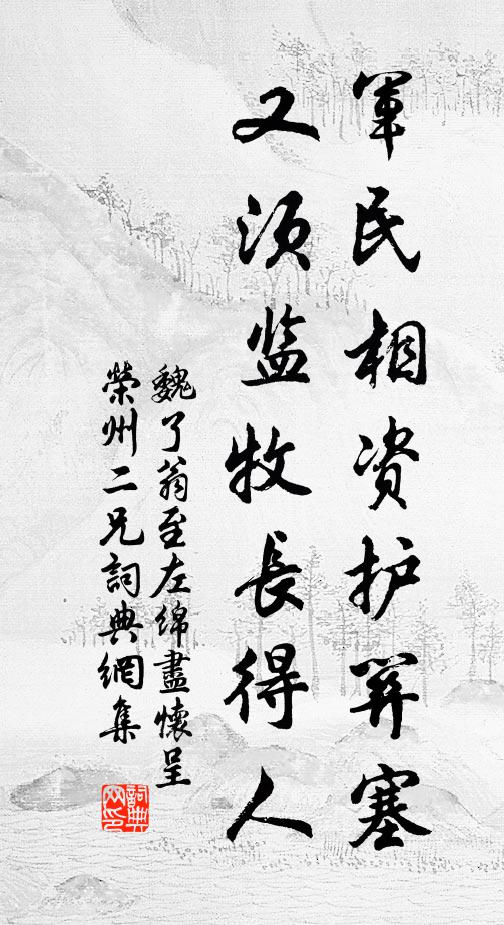 军民相资护关塞
又须监牧長得人
魏了翁至左绵盡懷呈
榮州二兄詞典網集
詞典网印